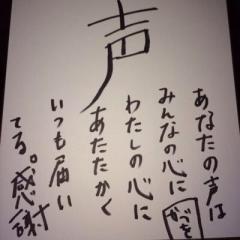 声
あなたの声は
みんなの心に
わたしの心に
あたたかく
いつも届い
てる。感謝
かづを